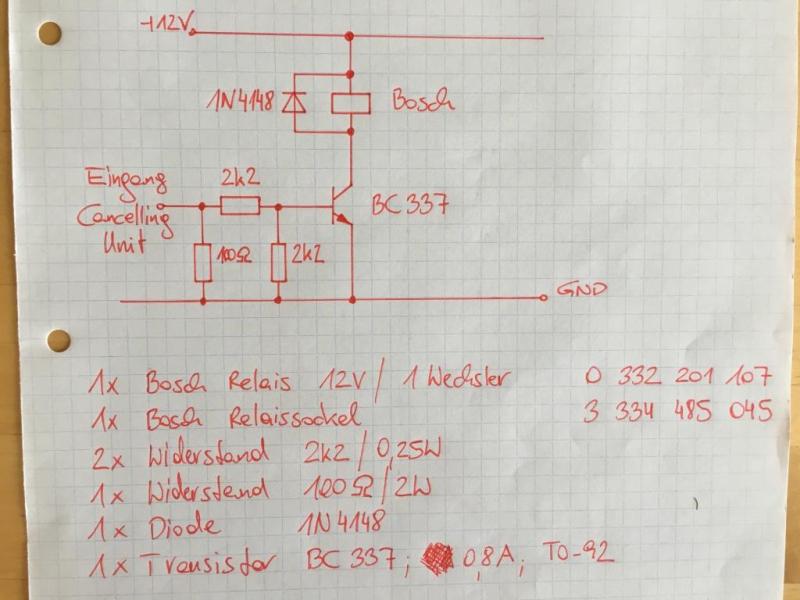 +12V
1N4148 Bosch
Eingang
Cancelling
Unit
2k2
BC 337
100Ω
2k2
GND
1x Bosch Relais 12V / 1 Wechsler 0 332 201 107
1x Bosch Relaissockel 3 334 485 045
2x Widerstand 2k2 / 0,25W
1x Widerstand 100Ω / 2W
1x Diode 1N4148
1x Transistor BC 337; 0,8A; TO-92